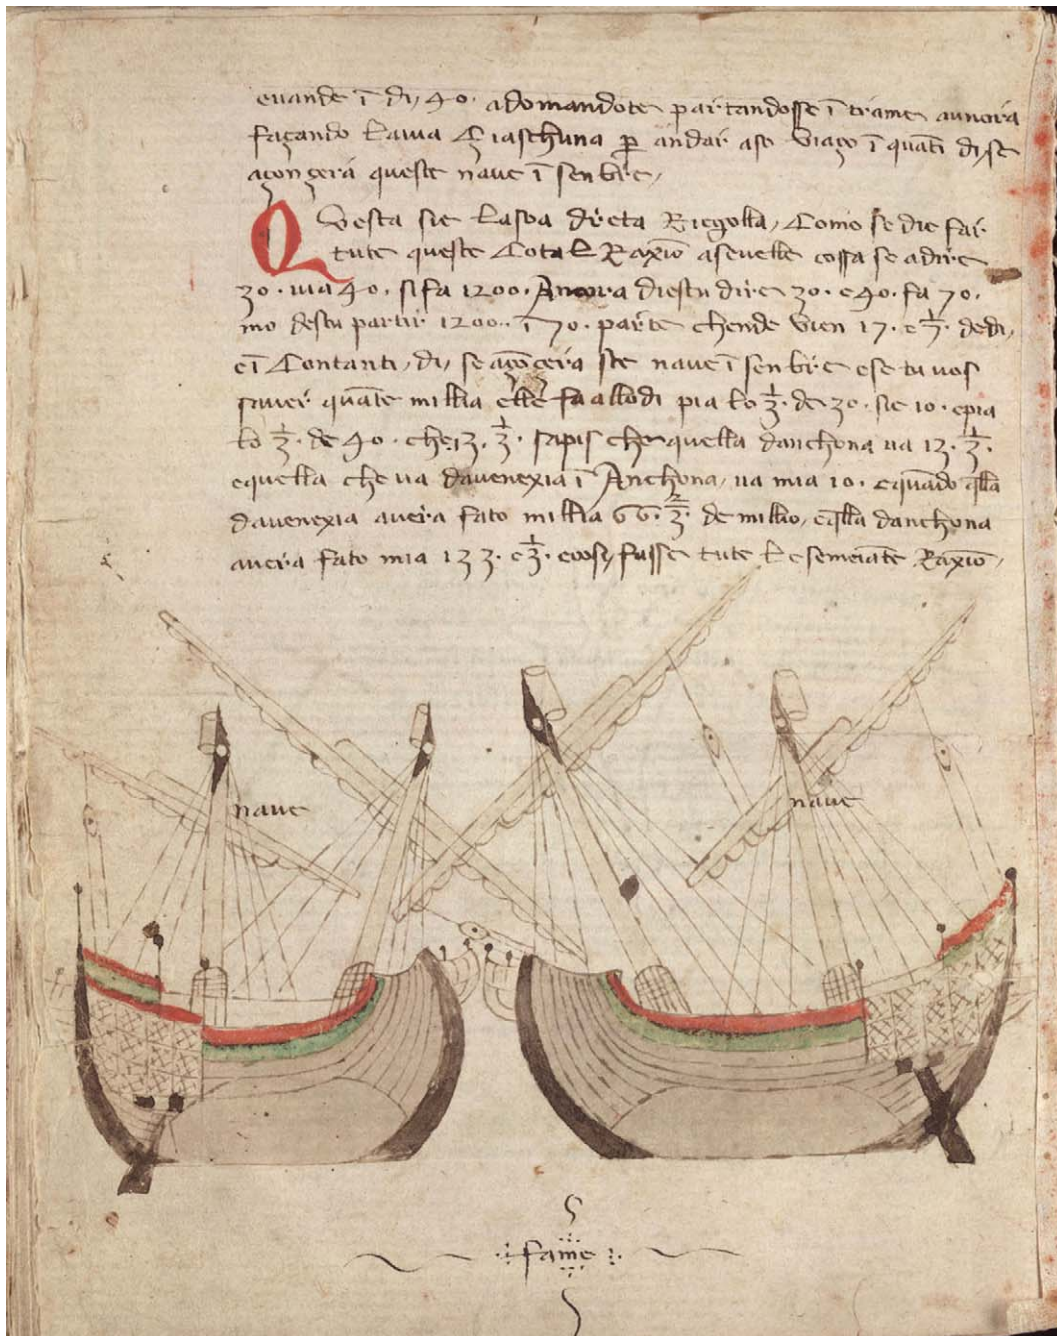 euande ī dí 40 adomandote partandosse ī trame anchora
façando laiua Ciaschuna ꝑ andar aso viaço ī quāti dí se
açonçerá queste naue ī senbre
Questa sie lasoa dreta Riegolla Como se die far
tute queste Cotal Raxiō aseuelle cossa se adire
30 · uia 40 · si fa 1200 · Ancora diestu dire 30 · e 40 · fa 70 ·
mo destu partir 1200 · ī 70 · parte chende vien 17 · e 1/7 · dedí
e ī Contanti dí se açōçera ste naue ī senbre e se tu uos
sauer quāte millia elle fa allo dí pia lo 1/3 · de 30 · sie 10 · epia
lo 1/3 · de 40 · che 13 · 1/3 · sapis che quella danchona ua 13 · 1/3 ·
equella che ua dauenexia ī Anchona ua mia 10 · equādo q̄lla
dauenexia auera fato millia 66 · 2/3 · de millio, eq̄lla danchona
auera fato mia 133 · e 1/3 · ecosy fasse tute le semeiāte Raxiō
naue
naue
fame